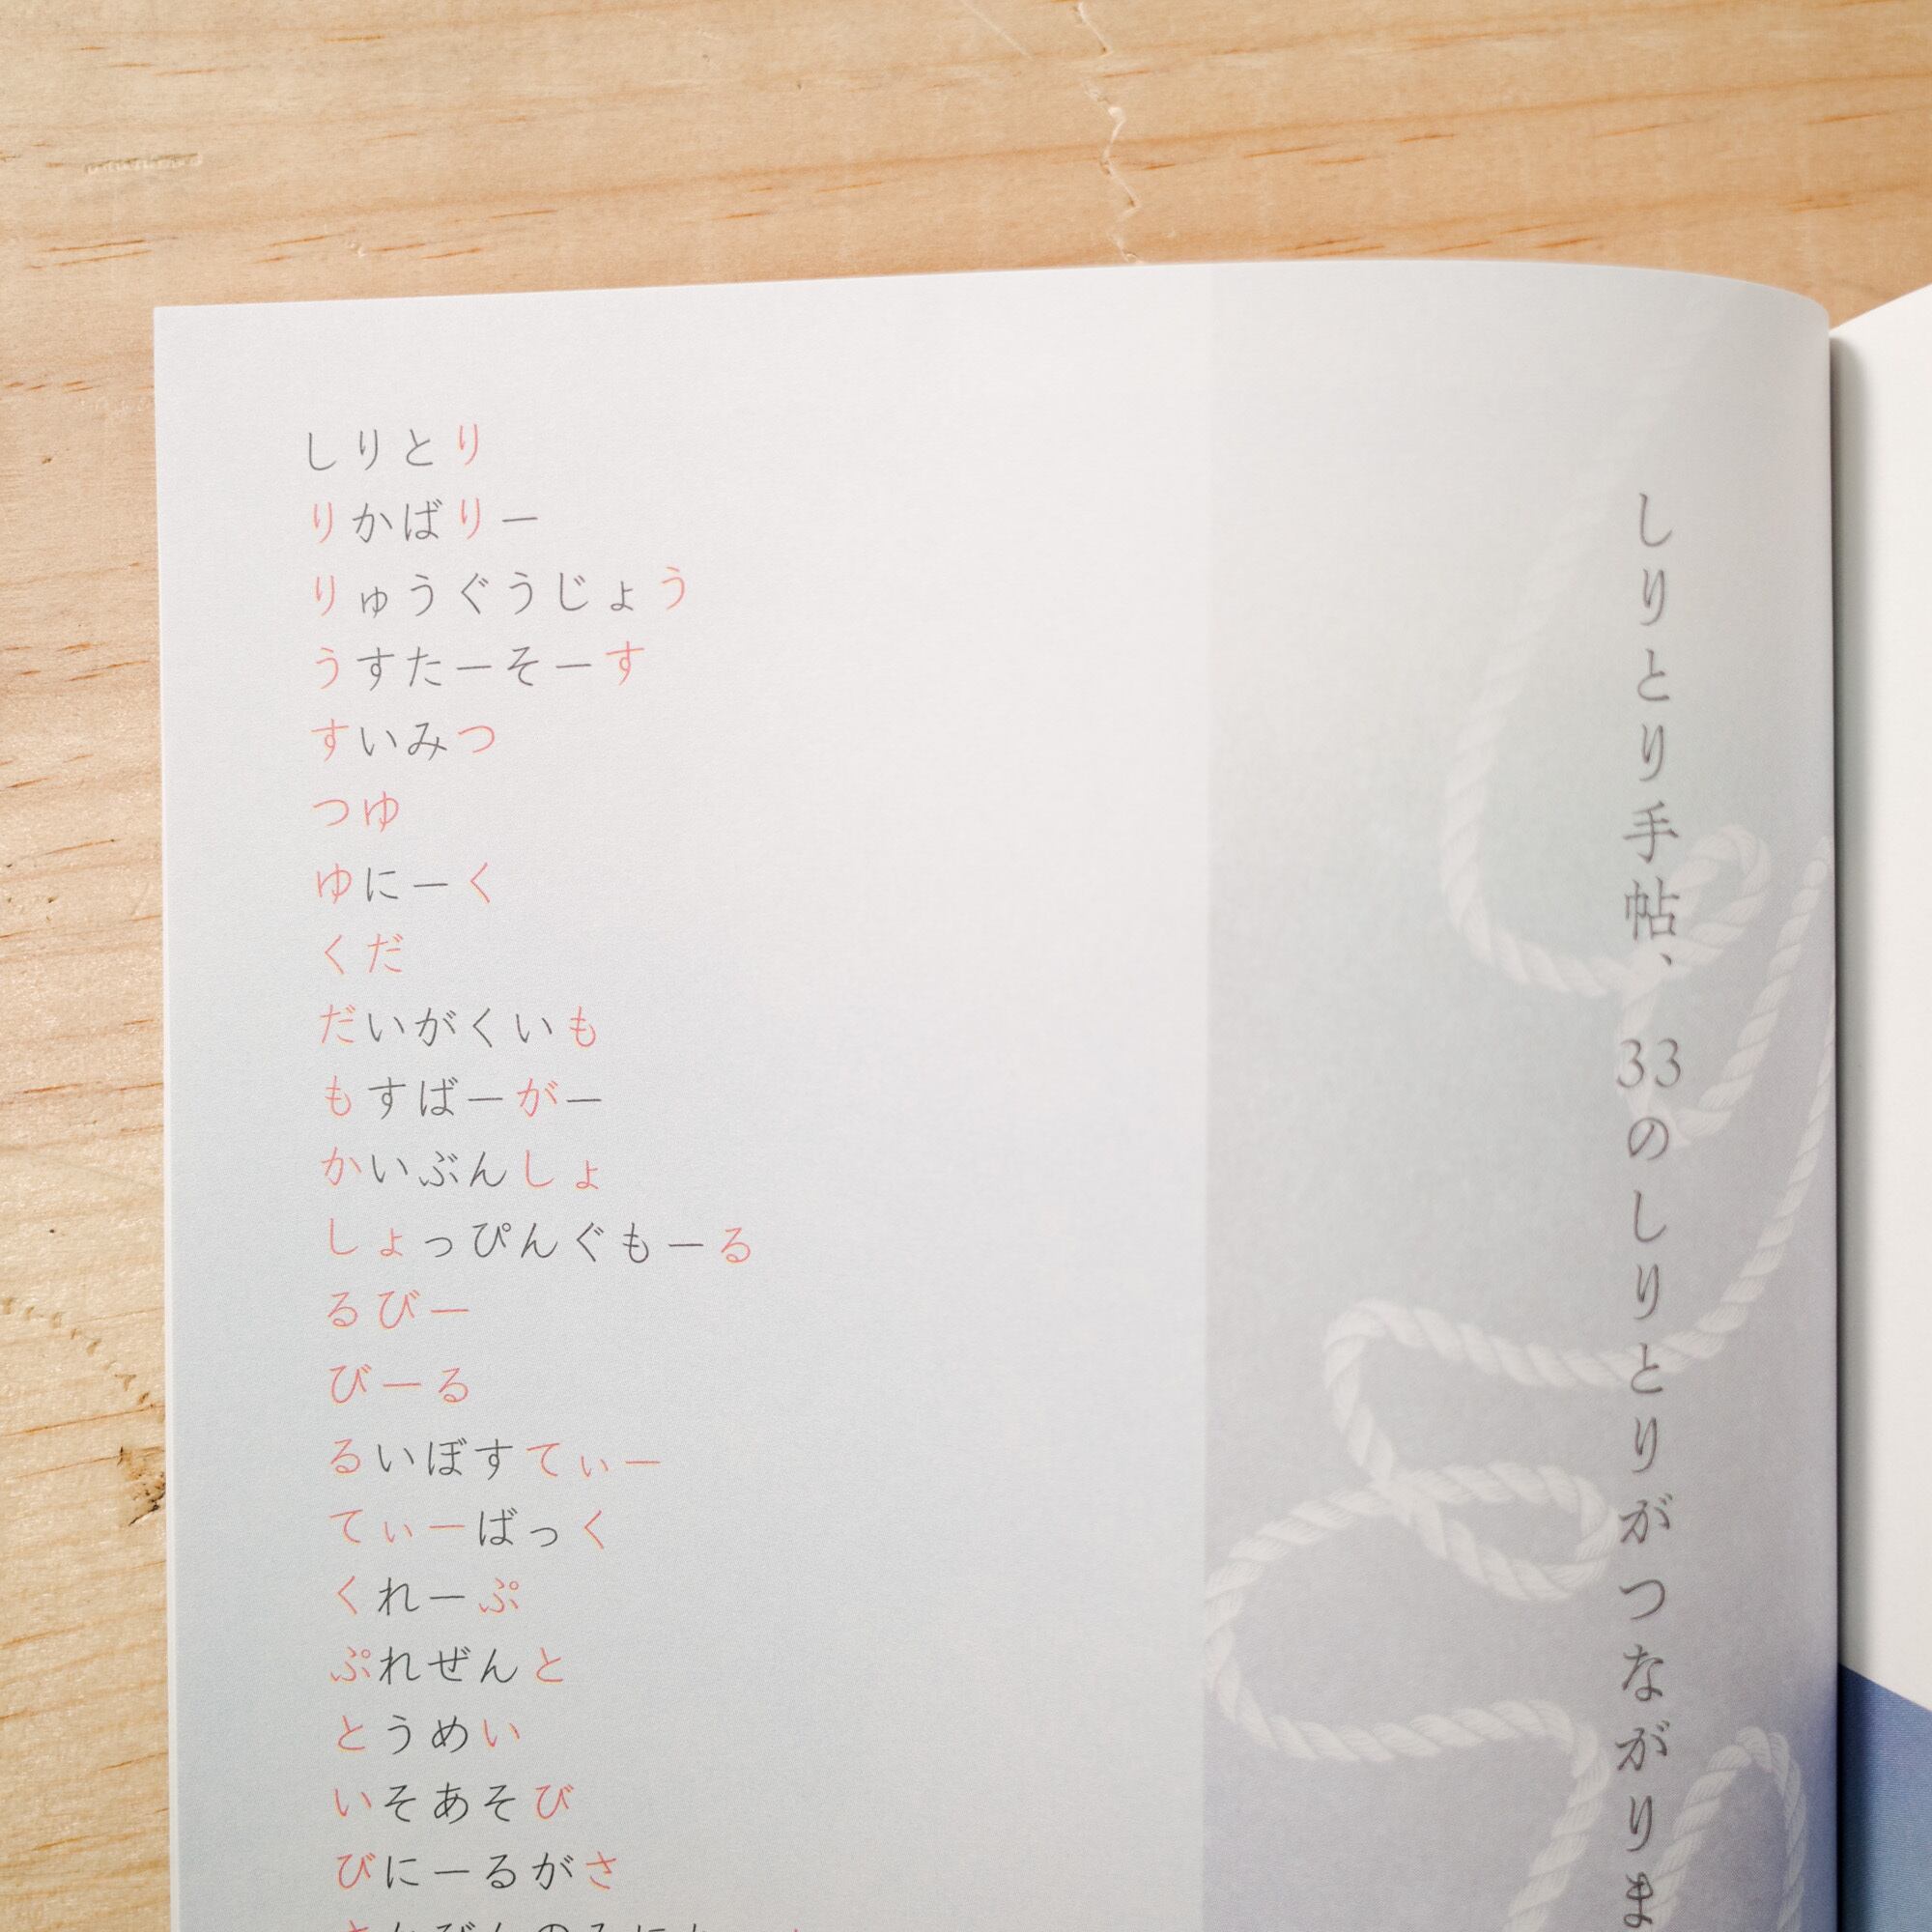 しりとり
りかばりー
りゅうぐうじょう
うすたーそーす
すいみつ
つゆ
ゆにーく
くだ
だいがくいも
もすばーがー
かいぶんしょ
しょっぴんぐもーる
るびー
びーる
るいぼすてぃー
てぃーばっく
くれーぷ
ぷれぜんと
とうめい
いそあそび
びにーるがさ
しりとり手帖、33のしりとりがつながりま